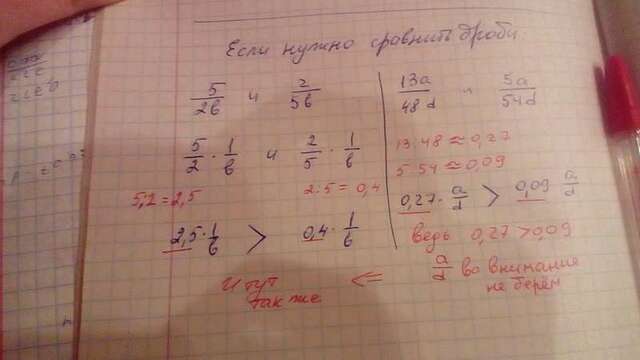 Если нужно сравнить дроби.
5/2b и 2/5b
5/2 · 1/b и 2/5 · 1/b
5:2=2,5 2:5=0,4
2,5 · 1/b > 0,4 · 1/b
И тут
также
13a/48d и 5a/54d
13:48≈0,27
5:54≈0,09
0,27 · a/d > 0,09 a/d
ведь 0,27>0,09
⇐ a/d во внимание
не берём